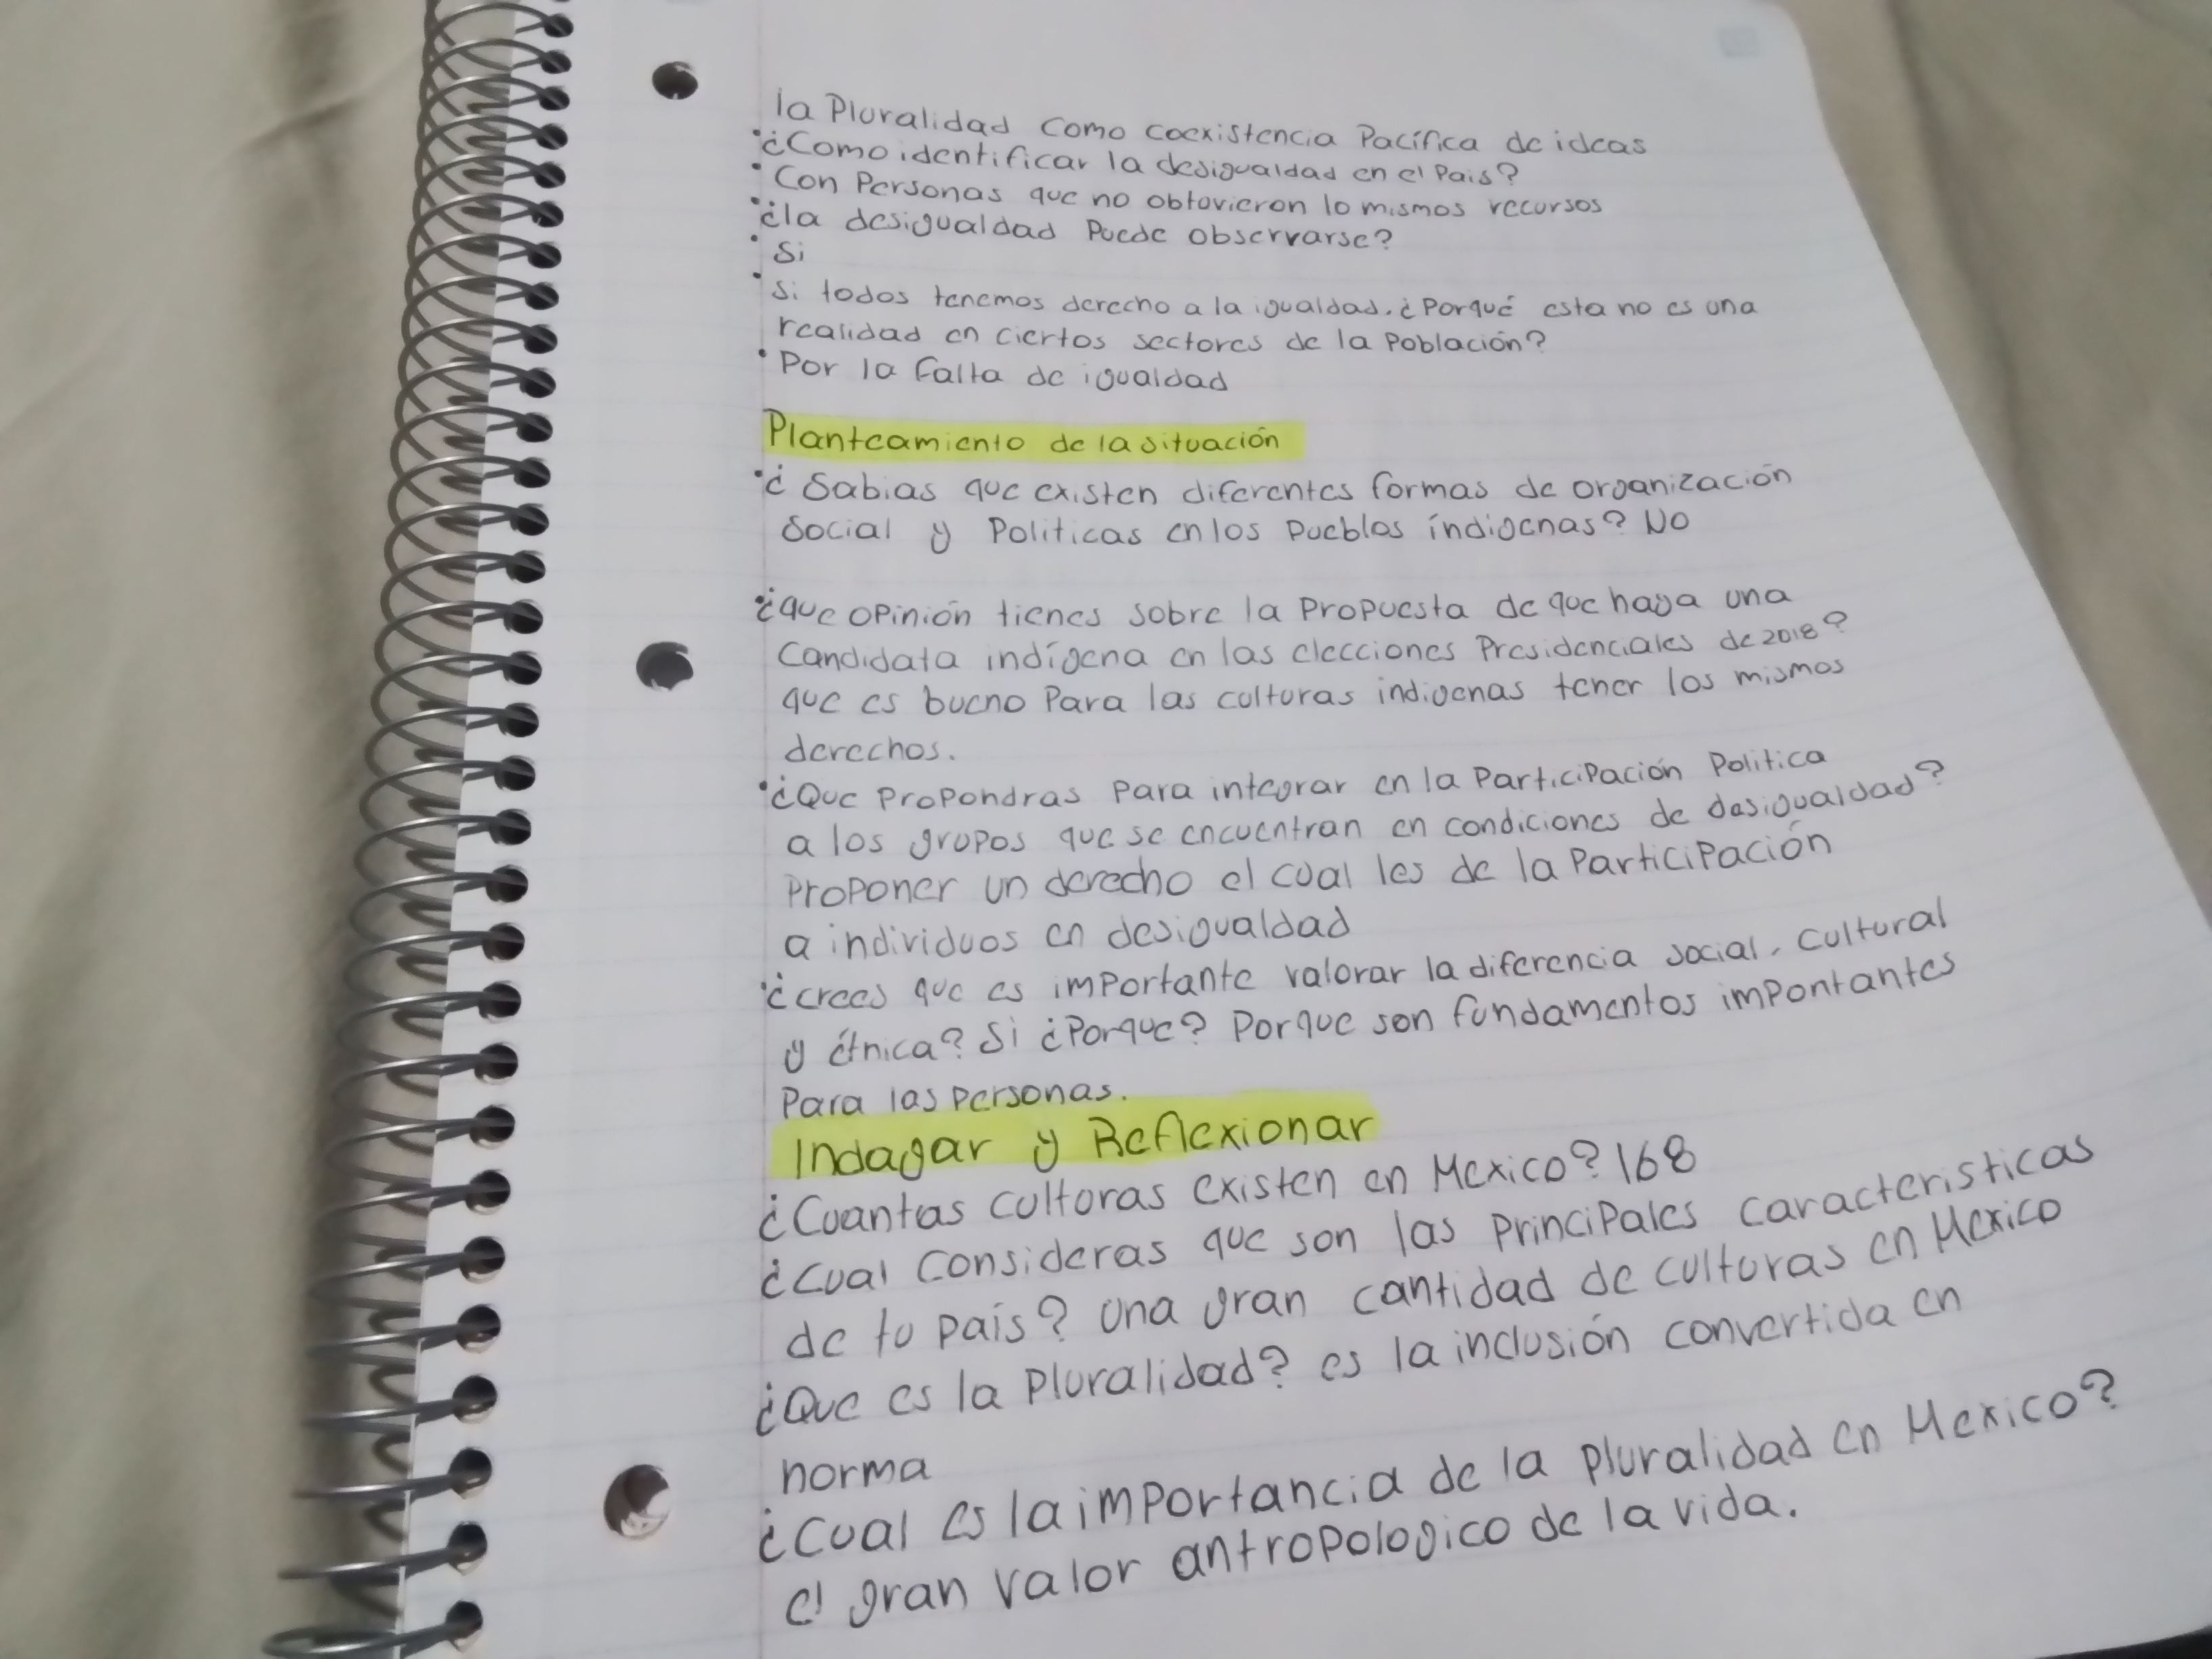 la Pluralidad como coexistencia Pacífica de ideas
•¿Como identificar la desigualdad en el Pais?
•Con Personas que no obtuvieron lo mismos recursos
•¿la desigualdad Puede observarse?
•Si
•Si todos tenemos derecho a la igualdad. ¿Porqué esta no es una
realidad en ciertos sectores de la Población?
•Por la falta de igualdad
Planteamiento de la situación
•¿Sabias que existen diferentes formas de organización
Social y Politicas en los Pueblos indigenas? No
•¿que opinión tienes sobre la Propuesta de que haya una
Candidata indígena en las elecciones Presidenciales de 2018?
que es bueno Para las culturas indigenas tener los mismos
derechos.
•¿Que Propondras Para integrar en la Participación Politica
a los grupos que se encuentran en condiciones de desigualdad?
Proponer un derecho el cual les de la Participación
a individuos en desigualdad
•¿crees que es importante valorar la diferencia social, cultural
y étnica? Si ¿Porque? Porque son fundamentos impontantes
Para las Personas.
Indagar y Reflexionar
¿Cuantas culturas existen en Mexico? 168
¿Cual Consideras que son las Principales caracteristicas
de tu país? Una gran cantidad de culturas en Mexico
¿Que es la Pluralidad? es la inclusión convertida en
norma
¿Cual es la importancia de la pluralidad en Mexico?
el gran valor antropologico de la vida.